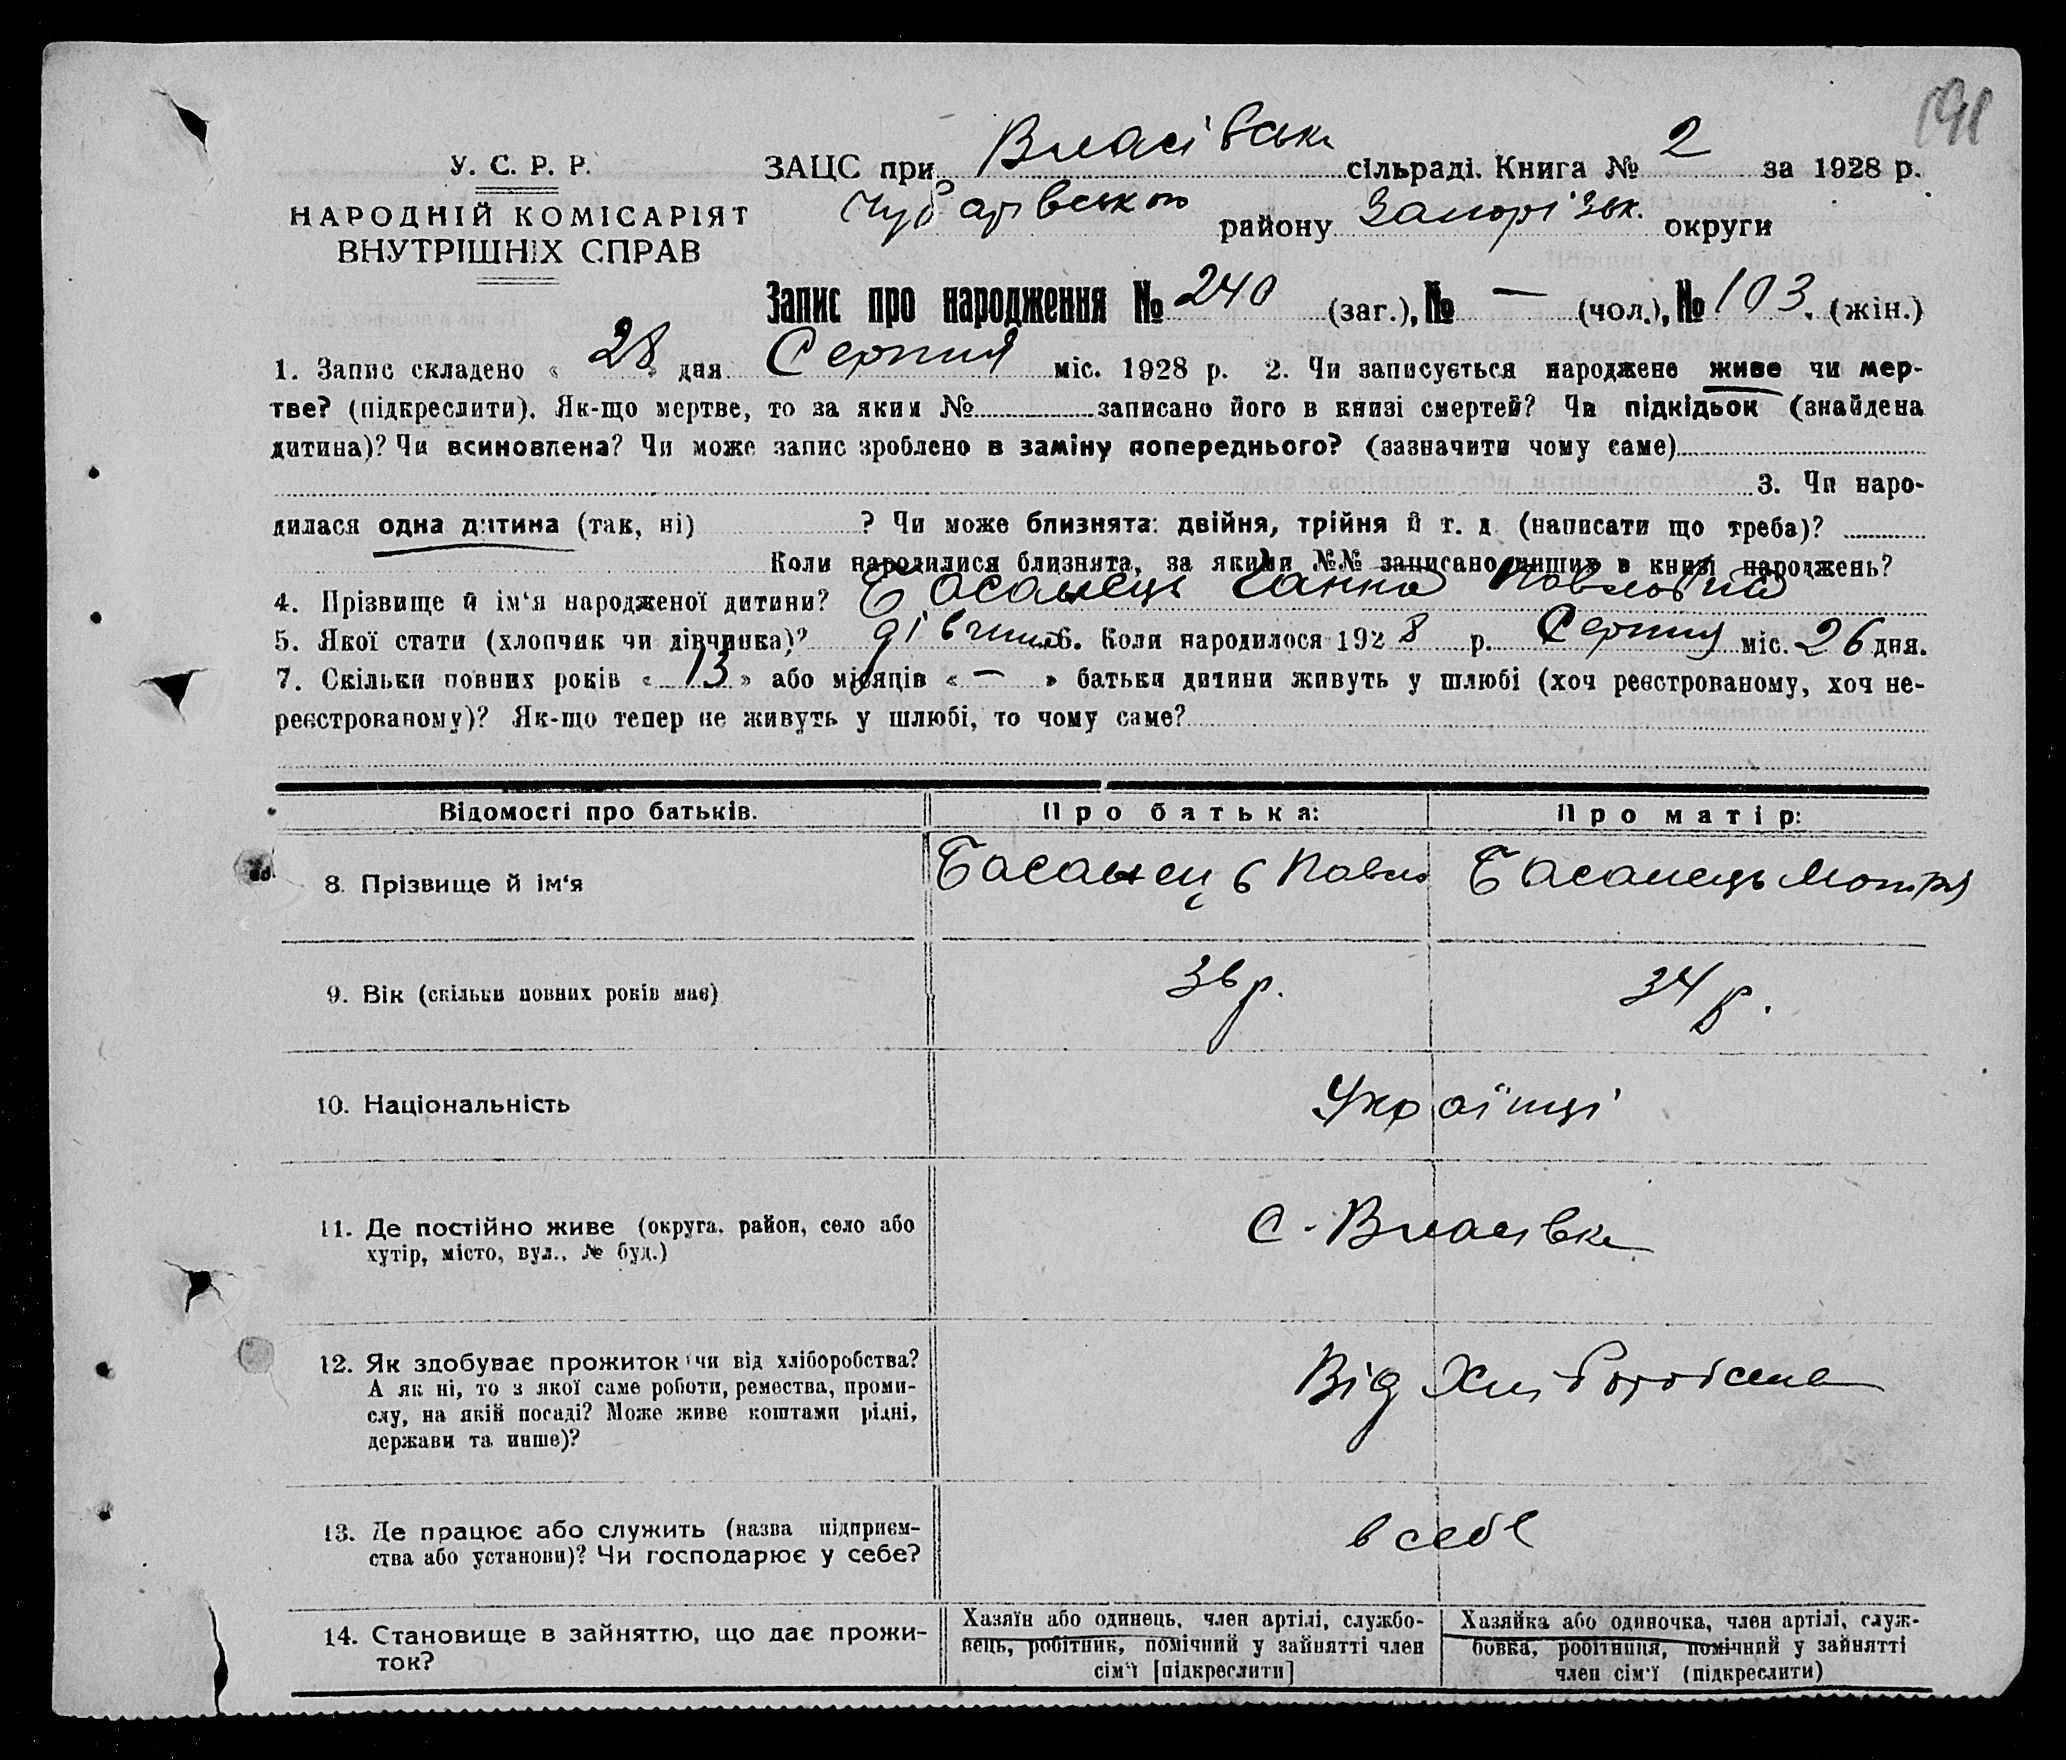 191
У. С. Р. Р.
НАРОДНІЙ КОМІСАРІЯТ
ВНУТРІШНІХ СПРАВ
ЗАЦС при Власівськ сільраді. Книга № 2 за 1928 р.
Чубарівською району Запорізьк. округи
Запис про народження № 240 (заг.), № — (чол.), № 103. (жін.)
1. Запис складено « 28 » дня Серпня міс. 1928 р. 2. Чи записується народжене живе чи мер-
тве? (підкреслити). Як-що мертве, то за яким № записано його в книзі смертей? Чи підкідьок (знайдена
дитина)? Чи всиновлена? Чи може запис зроблено в заміну попереднього? (зазначити чому саме)
3. Чи наро-
дилася одна дитина (так, ні) ? Чи може близнята: двійня, трійня й т. д. (написати що треба)?
Коли народилися близнята, за якими №№ записано инших в книзі народжень?
4. Прізвище й ім‘я народженої дитини? Басанець Ганна Павловна
5. Якої стати (хлопчик чи дівчинка)? дівчина 6. Коли народилося 1928 р. Серпня міс. 26 дня.
7. Скільки повних років « 13 » або місяців « — » батьки дитини живуть у шлюбі (хоч реєстрованому, хоч не-
реєстрованому)? Як-що тепер не живуть у шлюбі, то чому саме?
Відомості про батьків. Про батька: Про матір:
8. Прізвище й ім‘я Басанець Павло Басанець Мотря
9. Вік (скільки повних років має) 36 р. 34 р.
10. Національність Українці
11. Де постійно живе (округа, район, село або
хутір, місто, вул., № буд.) С. Власівка
12. Як здобуває прожиток чи від хліборобства?
А як ні, то з якої саме роботи, ремества, проми-
слу, на якій посаді? Може живе коштами рідні,
держави та инше)? Від Хліборобства
13. Де працює або служить (назва підприєм-
ства або установи)? Чи господарює у себе? в себе
14. Становище в зайняттю, що дає прожи-
ток?
Хазяїн або одинець, член артілі, службо-
вець, робітник, помічний у зайнятті член
сім‘ї [підкреслити]
Хазяйка або одиночка, член артілі, служ-
бовка, робітниця, помічний у зайнятті
член сім‘ї (підкреслити)